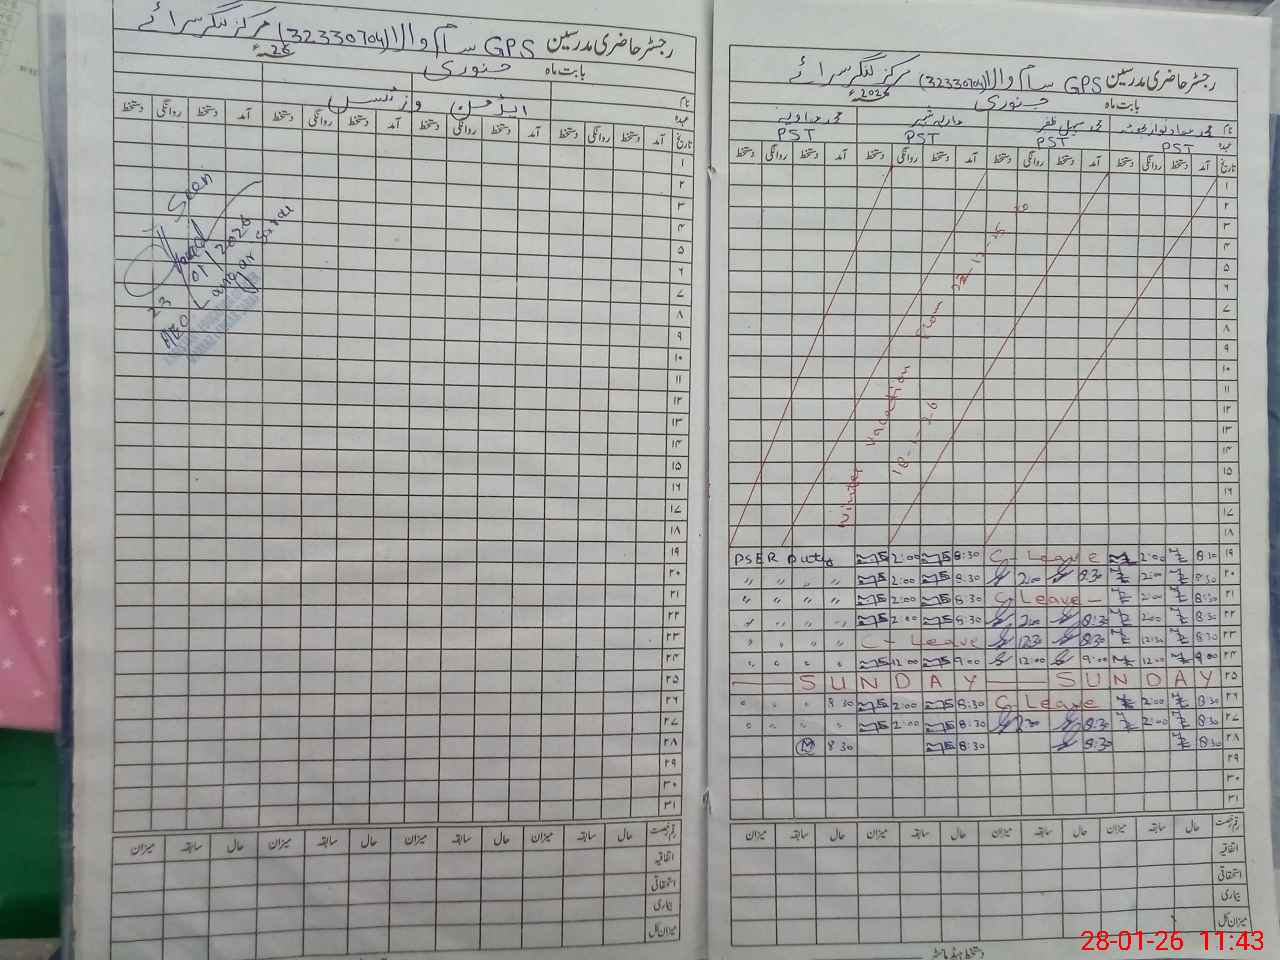 رجسٹر حاضری مدرسین GPS سام والا (32330704) مرکز لنگر سرائے
بابت ماہ جنوری 2026ء
نام محمد سہیل ظفر محمد معاویہ
عہدہ PST PST PST PST
تاریخ آمد دستخط روانگی دستخط آمد دستخط روانگی دستخط آمد دستخط روانگی دستخط آمد دستخط روانگی دستخط
۱
۲
۳
۴
۵
۶
۷
۸
۹
۱۰
۱۱
۱۲
۱۳
۱۴
۱۵
۱۶
۱۷
۱۸
Winter Vacation From
18-1-26
۱۹ 8:30 2:00 C-Leave 8:30 2:00 PSER Duty
۲۰ 8:30 2:00 8:30 2:00 8:30 2:00 " " " "
۲۱ 8:30 2:00 C Leave - 8:30 2:00 " " " "
۲۲ 8:30 2:00 8:30 2:00 8:30 2:00 " " " "
۲۳ 8:30 12:30 8:30 12:30 C - Leave " " " "
۲۴ 9:00 12:00 9:00 12:00 9:00 12:00 " " " "
۲۵ SUNDAY SUNDAY
۲۶ 8:30 2:00 C Leave 8:30 2:00 8:30 " " "
۲۷ 8:30 2:00 8:30 8:30 2:00 " " " "
۲۸ 8:30 8:30 8:30 8:30 M
۲۹
۳۰
۳۱
قسم رخصت حال سابقہ میزان حال سابقہ میزان حال سابقہ میزان حال سابقہ میزان
اتفاقیہ
استحقاقی
بیماری
میزان کل
دستخط ہیڈ ماسٹر
رجسٹر حاضری مدرسین GPS سام والا (32330704) مرکز لنگر سرائے
بابت ماہ جنوری 26ء
نام
عہدہ ایڈمن وزٹس
تاریخ آمد دستخط روانگی دستخط آمد دستخط روانگی دستخط آمد دستخط روانگی دستخط آمد دستخط روانگی دستخط
۱
۲
۳
۴
۵
۶
۷
۸
۹
۱۰
۱۱
۱۲
۱۳
۱۴
۱۵
۱۶
۱۷
۱۸
۱۹
۲۰
۲۱
۲۲
۲۳
۲۴
۲۵
۲۶
۲۷
۲۸
۲۹
۳۰
۳۱
Seen
23/01/2026
AEO Langar Sarai
قسم رخصت حال سابقہ میزان حال سابقہ میزان حال سابقہ میزان حال سابقہ میزان
اتفاقیہ
استحقاقی
بیماری
میزان کل
28-01-26 11:43